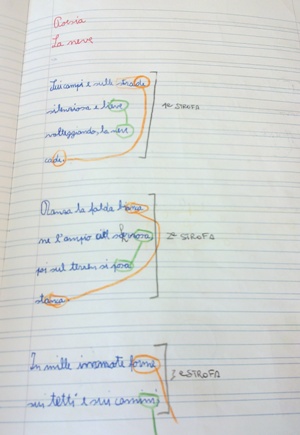 Poesia
La neve
Sui campi e sulle strade
silenziosa e lieve 1a STROFA
volteggiando, la neve
cade.
Danza la falda bianca
ne l'ampio scherzosa 2a STROFA
poi sul terren si posa
stanca
In mille immote forme
sui tetti e sui camini 3a STROFA